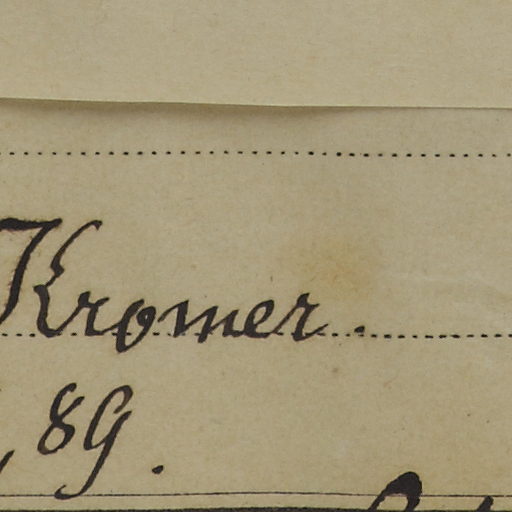 Kromer.
, 89.